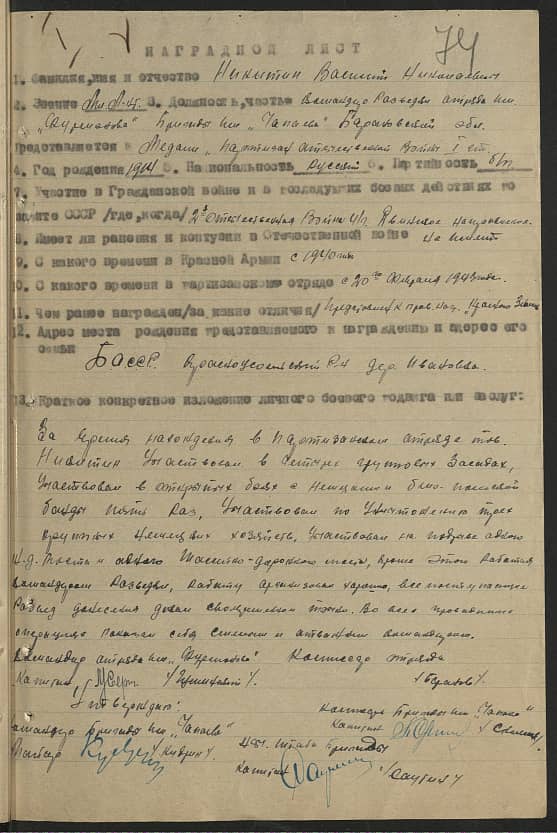 74
НАГРАДНОЙ ЛИСТ
1. Фамилия, имя и отчество Никитин Василий Николаевич
2. Звание Мл. Л-т. 3. Должность, часть Командир Разведки отряда им.
„Фурманова" Бригады им „Чапаева" Барановской обл.
Представляется к Медали „Партизан отечественной Войны I ст.
4. Год рождения 1914 5. Национальность русский 6. Партийность б/п
7. Участие в Гражданской войне и в последующих боевых действиях по
защите СССР /где, когда/ Отечественная Война
8. Имеет ли ранения и контузии в Отечественной войне не имеет
9. С какого времени в Красной Армии с 1940
10. С какого времени в партизанском отряде с 20го Февраля 1943 года.
11. Чем ранее награжден /за какие отличия/ Представлен к
12. Адрес места рождения представляемого к награждению и адрес его
семьи
БАССР. р-н дер. Ивановка.
13. Краткое конкретное изложение личного боевого подвига или заслуг:
За время нахождения в Партизанском отряде тов.
Никитин Участвовал в четырех групповых Засадах,
Участвовал в открытых боях с Немецкой и бело-польской
банды пять раз, Участвовал по Уничтожению трех
крупных Немецких хозяйств, Участвовал на подрыве одного
ж.д. Моста и одного Шоссейно-дорожного моста, кроме этого работая
Командиром Разведки, работу организовал хорошо, все поступающие
Развед донесения давал своевременно точно. Во всех проводимых
операциях показал себя смелым и отважным командиром.
Командир отряда им. „Фурманова" Комиссар отряда
Капитан
Утверждаю:
Командир Бригады им „Чапаева" комиссар Бригады им „Чапаева"
Майор Капитан
Нач. Штаба Бригады
Капитан